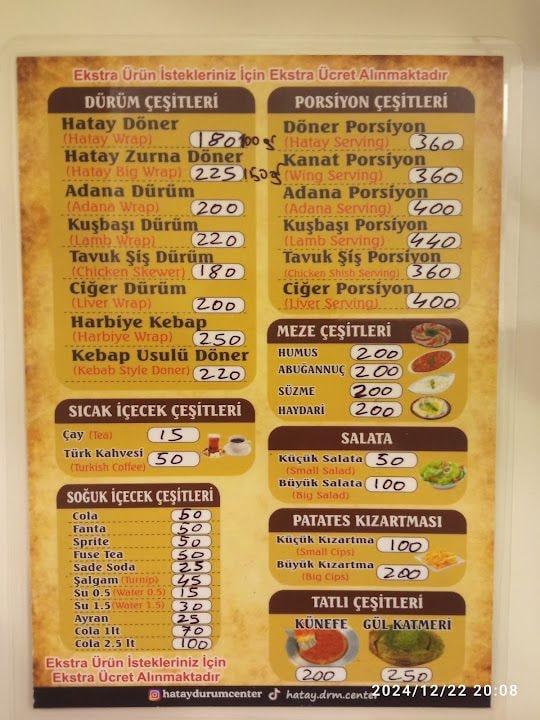 Ekstra Ürün İstekleriniz İçin Ekstra Ücret Alınmaktadır
DÜRÜM ÇEŞİTLERİ
Hatay Döner
(Hatay Wrap) 180 100 gr
Hatay Zurna Döner
(Hatay Big Wrap) 225 150 gr
Adana Dürüm
(Adana Wrap) 200
Kuşbaşı Dürüm
(Lamb Wrap) 220
Tavuk Şiş Dürüm
(Chicken Skewer) 180
Ciğer Dürüm
(Liver Wrap) 200
Harbiye Kebap
(Harbiye Wrap) 250
Kebap Usulü Döner
(Kebab Style Doner) 220
SICAK İÇECEK ÇEŞİTLERİ
Çay (Tea) 15
Türk Kahvesi
(Turkish Coffee) 50
SOĞUK İÇECEK ÇEŞİTLERİ
Cola 50
Fanta 50
Sprite 50
Fuse Tea 50
Sade Soda 25
Şalgam (Turnip) 45
Su 0.5 (Water 0.5) 15
Su 1.5 (Water 1.5) 30
Ayran 25
Cola 1lt 70
Cola 2.5 lt 100
Ekstra Ürün İstekleriniz İçin
Ekstra Ücret Alınmaktadır
PORSİYON ÇEŞİTLERİ
Döner Porsiyon
(Hatay Serving) 360
Kanat Porsiyon
(Wing Serving) 360
Adana Porsiyon
(Adana Serving) 400
Kuşbaşı Porsiyon
(Lamb Serving) 440
Tavuk Şiş Porsiyon
(Chicken Shish Serving) 360
Ciğer Porsiyon
(Liver Serving) 400
MEZE ÇEŞİTLERİ
HUMUS 200
ABUGANNUÇ 200
SÜZME 200
HAYDARİ 200
SALATA
Küçük Salata 50
(Small Salad)
Büyük Salata 100
(Big Salad)
PATATES KIZARTMASI
Küçük Kızartma 100
(Small Cips)
Büyük Kızartma 200
(Big Cips)
TATLI ÇEŞİTLERİ
KÜNEFE GÜL KATMERİ
200 250
hataydurumcenter hatay.drm.center
2024/12/22 20:08